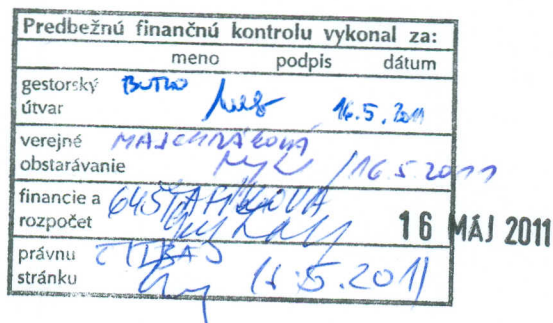 Predbežnú finančnú kontrolu vykonal za:
meno podpis dátum
gestorský útvar BUTKO 16.5.2011
verejné obstarávanie MAJCHRÁKOVÁ 16.5.2011
financie a rozpočet 16 MÁJ 2011
právnu stránku .5.2011